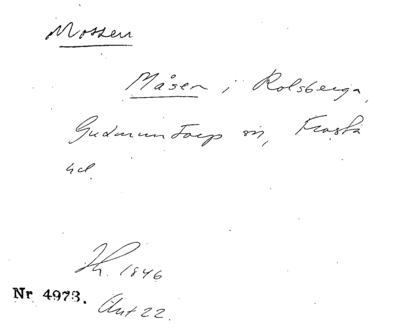 Mossen
Måsen i Rolsberga,
Gudmuntorp sn, Frosta
hd.
Th. 1846
Nr 4973.
Ant 22.